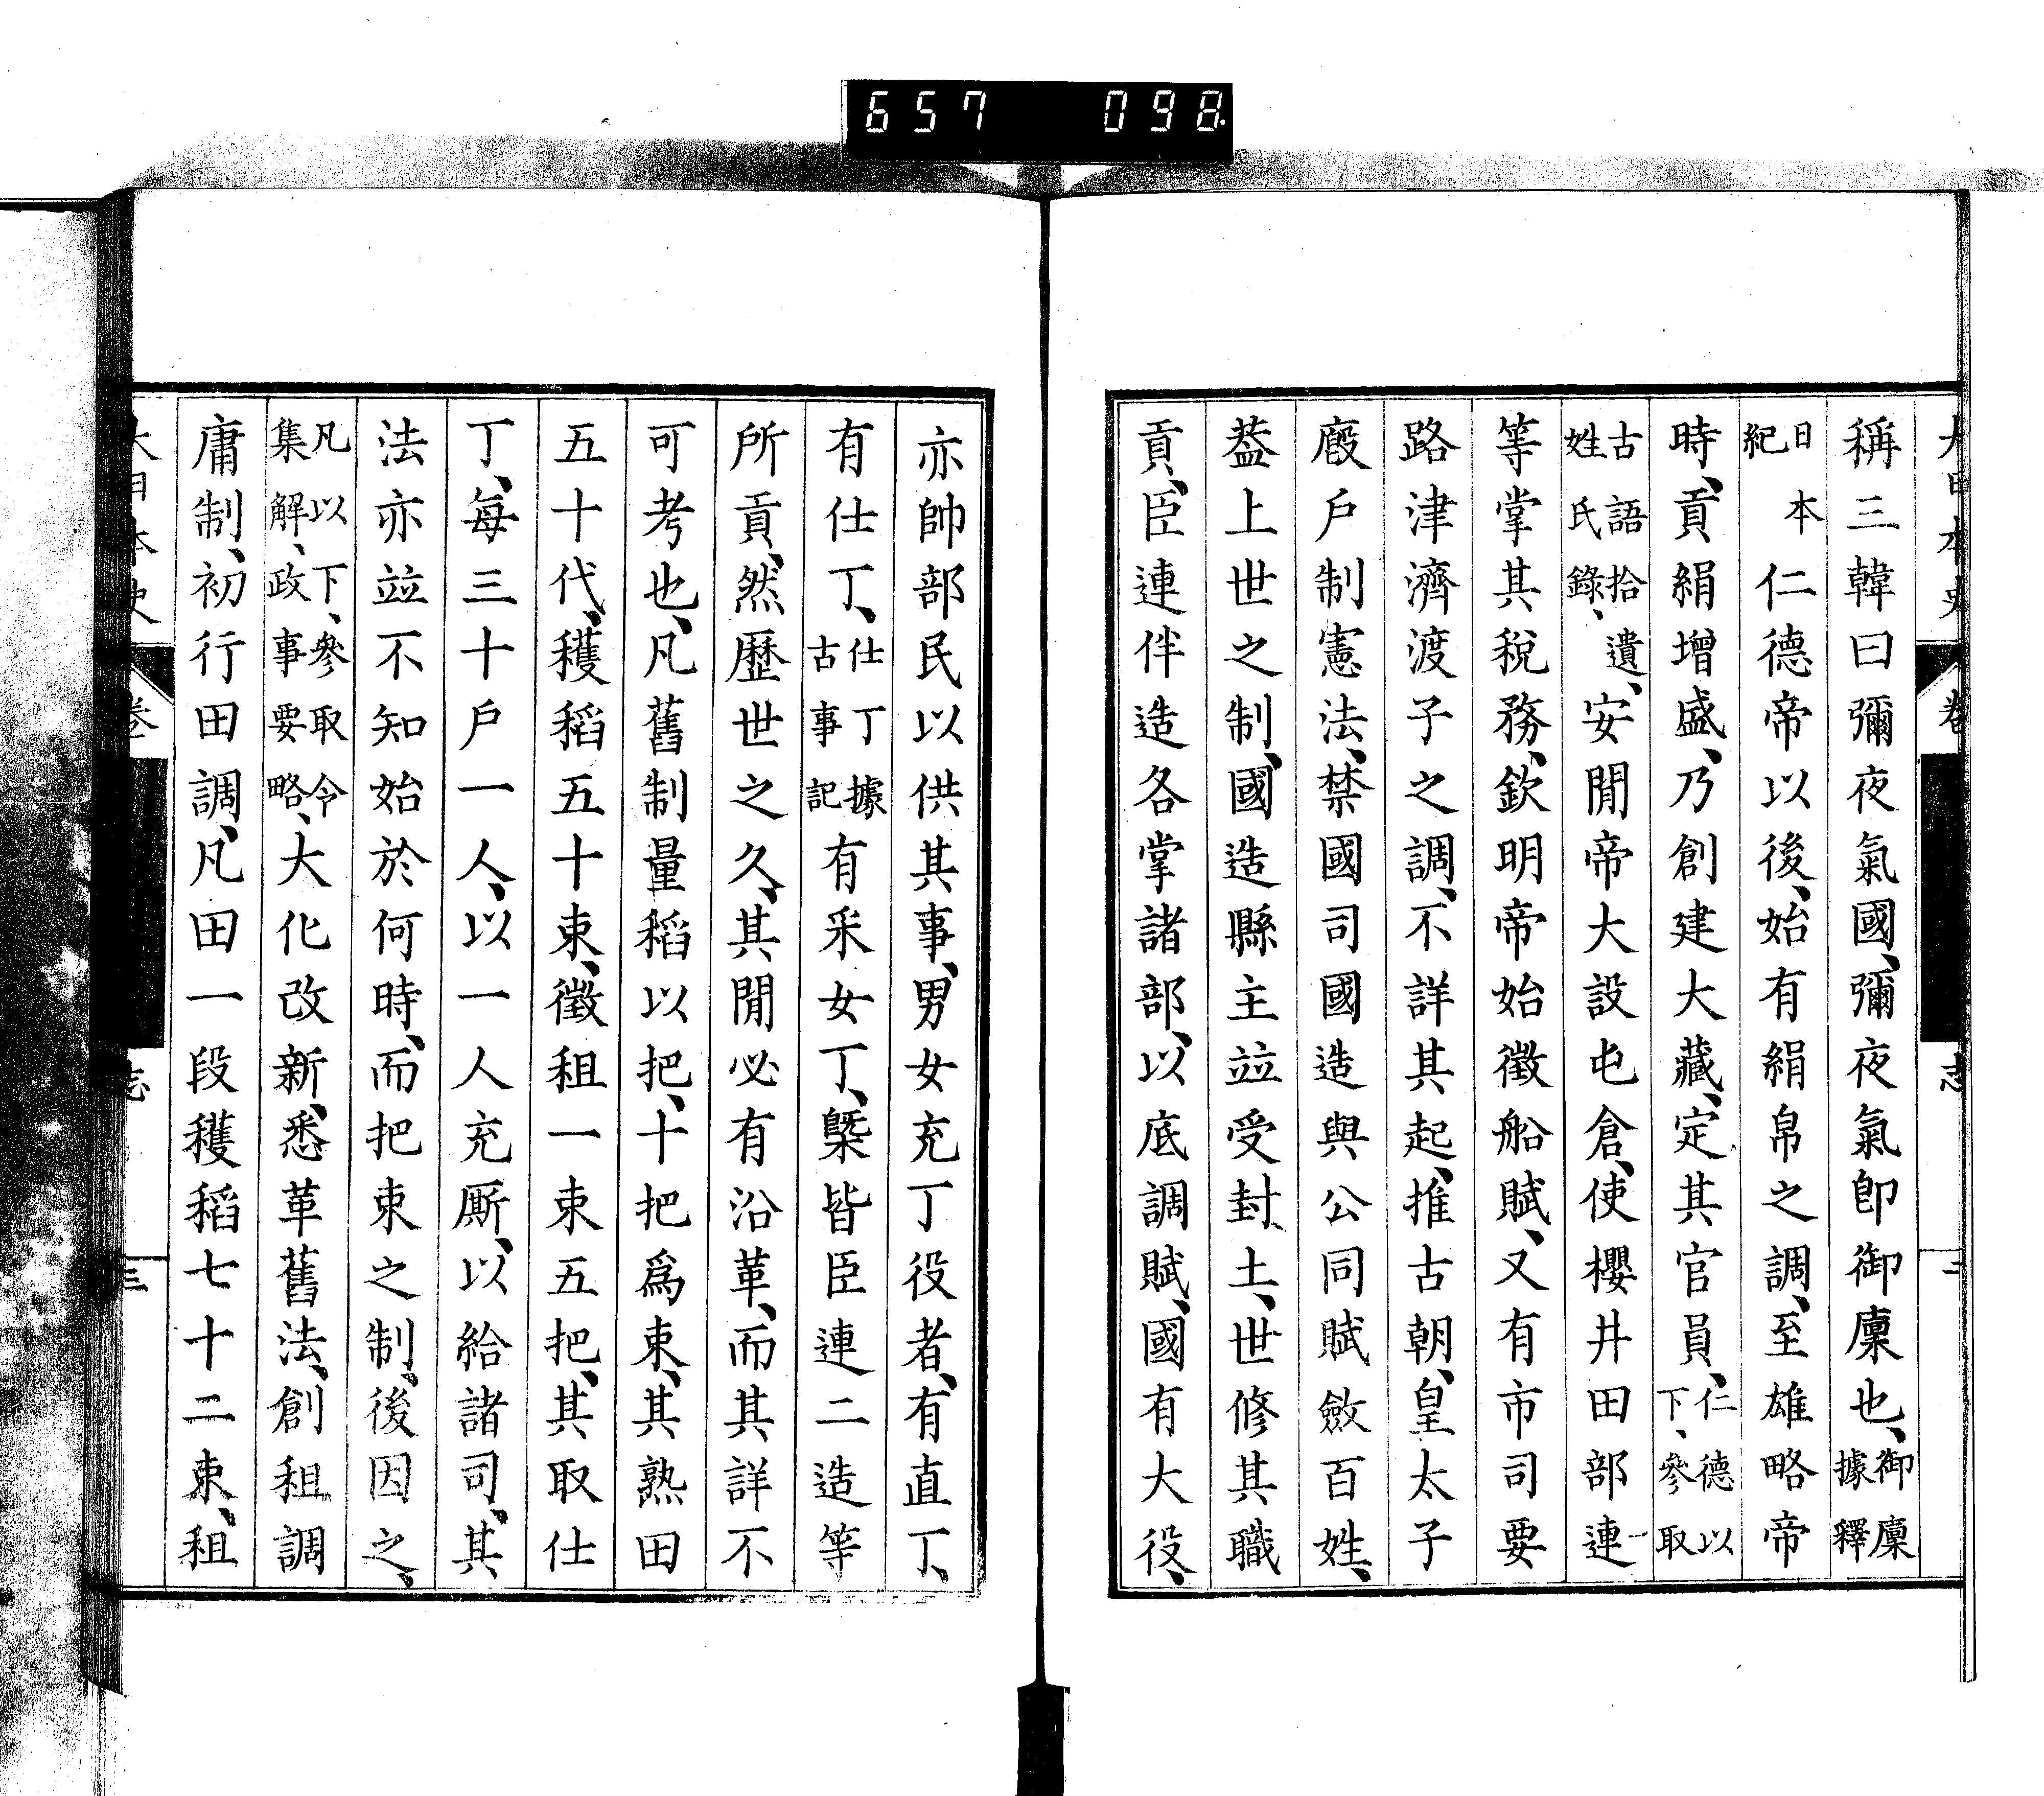 657 098
大日本史 卷 志 二
稱三韓曰彌夜氣國、彌夜氣卽御廩也、御廩據釋
日本紀仁德帝以後、始有絹帛之調、至雄略帝
時、貢絹增盛、乃創建大藏、定其官員、仁德以下、參取
古語拾遺、姓氏錄、安閒帝大設屯倉、使櫻井田部連
等掌其稅務、欽明帝始徵船賦、又有市司要
路津濟渡子之調、不詳其起、推古朝、皇太子
廄戶制憲法、禁國司國造與公同賦斂百姓、
葢上世之制、國造縣主竝受封土、世修其職
貢、臣連伴造各掌諸部、以底調賦、國有大役、
亦帥部民以供其事、男女充丁役者、有直丁、
有仕丁、仕丁據古事記有釆女丁、槩皆臣連二造等
所貢、然歷世之久、其閒必有沿革、而其詳不
可考也、凡舊制量稻以把、十把爲束、其熟田
五十代、穫稻五十束、徵租一束五把、其取仕
丁、每三十戶一人、以一人充厮、以給諸司、其
法亦竝不知始於何時、而把束之制、後因之、
凡以下、參取令集解、政事要略、大化改新、悉革舊法、創租調
庸制、初行田調、凡田一段穫稻七十二束、租
大日本史 卷 志 三